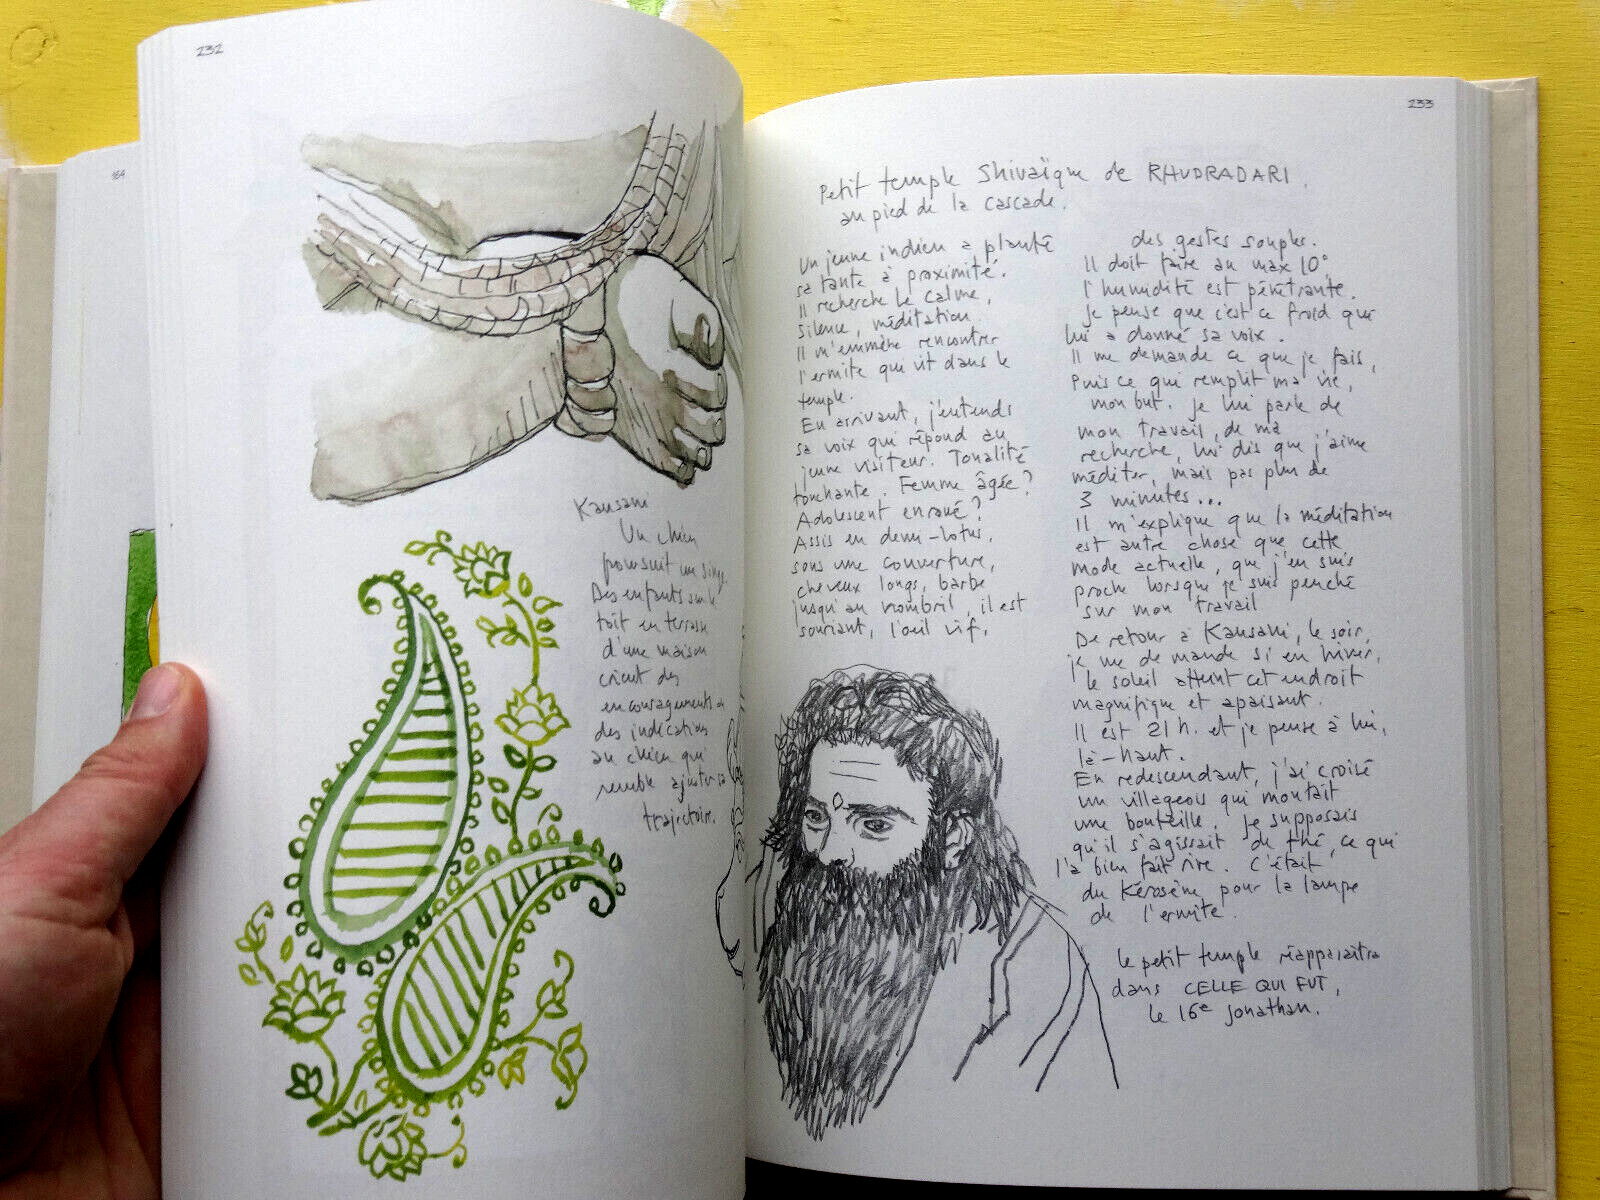 232
Kausani
Un chien
poursuit un singe.
Des enfants sur le
toit en terrasse
d'une maison
crient des
encouragements et
des indications
au chien qui
semble ajuster sa
trajectoire.
164
233
Petit temple Shivaïque de RHUDRADARI.
au pied de la cascade.
Un jeune indien a planté
sa tante à proximité.
Il recherche le calme,
silence, méditation.
Il m'emmène rencontrer
l'ermite qui vit dans le
temple.
En arrivant, j'entends
sa voix qui répond au
jeune visiteur. Tonalité
touchante. Femme âgée?
Adolescent enroué?
Assis en demi-lotus,
sous une couverture,
cheveux longs, barbe
jusqu'au nombril, il est
souriant, l'oeil vif,
des gestes souples.
Il doit faire au max 10°,
l'humidité est pénétrante.
je pense que c'est ce froid qui
lui a donné sa voix.
Il me demande ce que je fais,
Puis ce qui remplit ma vie,
mon but. je lui parle de
mon travail, de ma
recherche, lui dis que j'aime
méditer, mais pas plus de
3 minutes...
Il m'explique que la méditation
est autre chose que cette
mode actuelle, que j'en suis
proche lorsque je suis penché
sur mon travail
De retour à Kausani, le soir,
je me demande si en hiver,
le soleil atteint cet endroit
magnifique et apaisant.
Il est 21 h. et je pense à lui,
là-haut.
En redescendant, j'ai croisé
un villageois qui montait
une bouteille. je supposais
qu'il s'agissait de thé, ce qui
l'a bien fait rire. C'était
du Kérosène pour la lampe
de l'ermite.
Le petit temple réapparaitra
dans CELLE QUI FUT,
le 16e Jonathan.